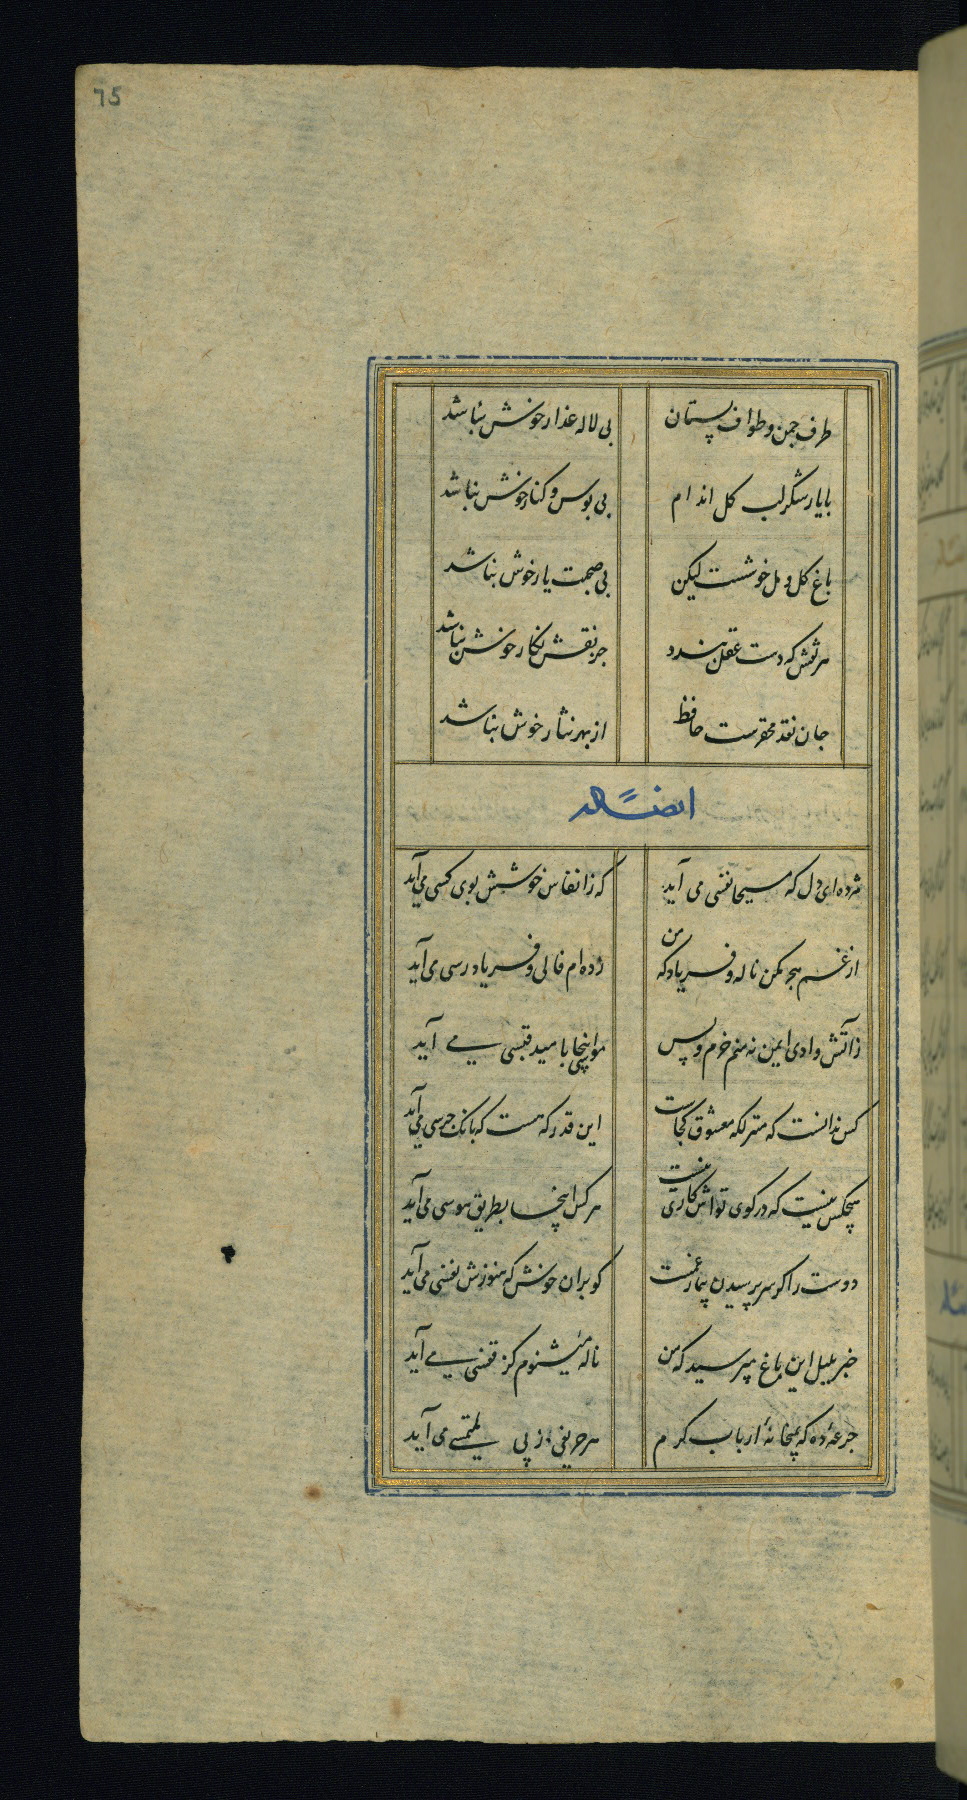 75
طرف چمن و طواف بستان بی لاله عذار خوش نباشد
با یار شکرلب کل اندام بی بوس و کنار خوش نباشد
باغ کل و مل خوشست لیکن بی صحبت یار خوش نباشد
هر نقش که دست عقل بندد جز نقش نکار خوش نباشد
جان نقد محقرست حافظ از بهر نثار خوش نباشد
ایضاً له
مژده ای دل که مسیحا نفسی می آید که ز انفاس خوشش بوی کسی می آید
از غم هجر مکن ناله و فریاد که من زده ام فالی و فریاد رسی می آید
ز آتش وادی ایمن نه منم خرم و بس موسی اینجا بامید قبسی می آید
کس ندانست که منزلکه معشوق کجاست این قدر هست که بانک جرسی می آید
هیچکس نیست که در کوی تواش کاری نیست هر کس اینجا بطریق هوسی می آید
دوست را کر سر پرسیدن بیمار غمست کو بران خوش که هنوزش نفسی می آید
خبر بلبل این باغ مپرسید که من ناله میشنوم کز قفسی می آید
جرعهٔ ده که بمیخانهٔ ارباب کرم هر حریفی ز پی ملتمسی می آید